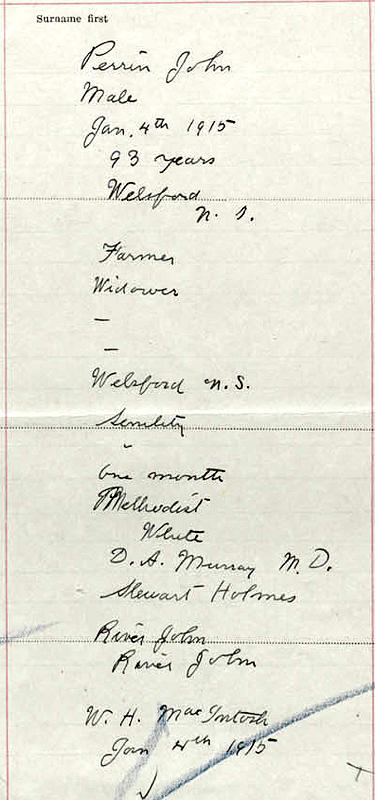 Surname first
Perrin John
Male
Jan. 4th 1915
93 years
Welsford
N. S.
Farmer
Widower
–
–
Welsford N.S.
Senility
–
One month
Methodist
White
D. A. Murray M.D.
Stewart Holmes
River John
River John
W. H. MacIntosh
Jan 4th 1915